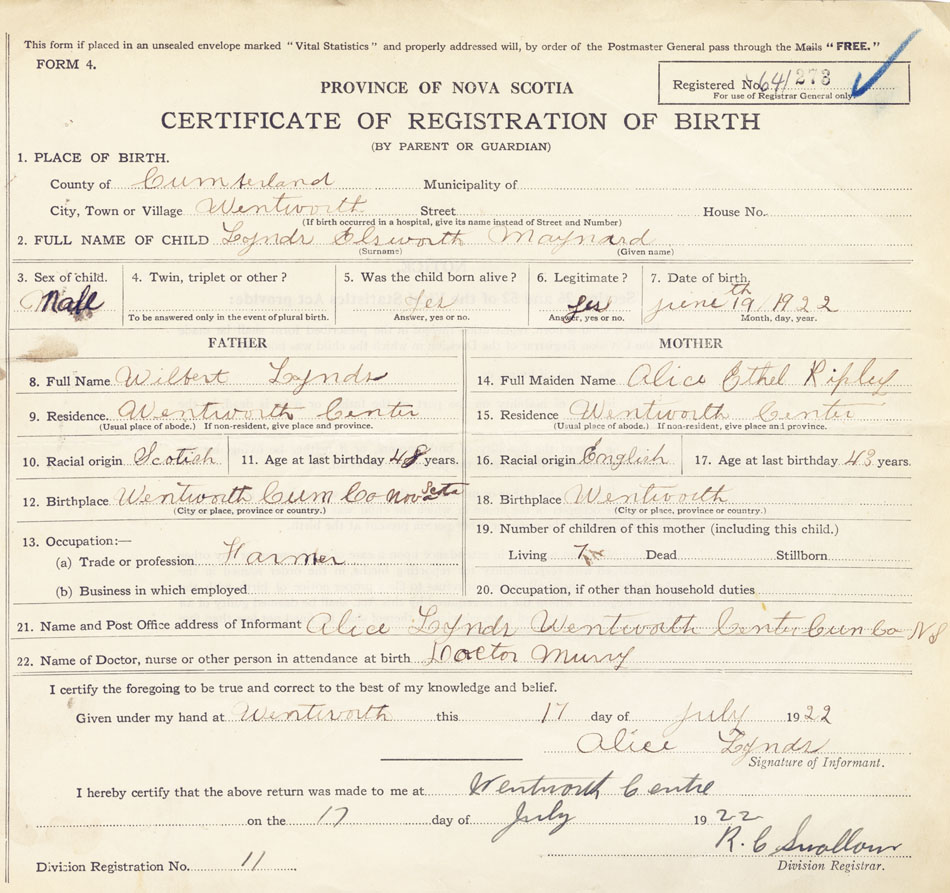 This form if placed in an unsealed envelope marked "Vital Statistics" and properly addressed will, by order of the Postmaster General pass through the Mails "FREE."
FORM 4.
Registered No. 641273
For use of Registrar General only.
PROVINCE OF NOVA SCOTIA
CERTIFICATE OF REGISTRATION OF BIRTH
(BY PARENT OR GUARDIAN)
1. PLACE OF BIRTH.
County of Cumberland Municipality of
City, Town or Village Wentworth Street House No.
(If birth occurred in a hospital, give its name instead of Street and Number)
2. FULL NAME OF CHILD Lynds Elsworth Maynard
(Surname) (Given name)
3. Sex of child. 4. Twin, triplet or other? 5. Was the child born alive? 6. Legitimate? 7. Date of birth,
Male Yes Yes june 19th 1922
To be answered only in the event of plural birth. Answer, yes or no. Answer, yes or no. Month, day, year.
FATHER MOTHER
8. Full Name Wilbert Lynds 14. Full Maiden Name Alice Ethel Ripley
9. Residence. Wentworth Center 15. Residence Wentworth Center
(Usual place of abode.) If non-resident, give place and province. (Usual place of abode.) If non-resident, give place and province.
10. Racial origin Scotish 11. Age at last birthday 48 years. 16. Racial origin English 17. Age at last birthday 43 years.
12. Birthplace Wentworth Cum Co Nova Scota 18. Birthplace Wentworth
(City or place, province or country.) (City or place, province or country.)
19. Number of children of this mother (including this child.)
13. Occupation:—
(a) Trade or profession Farmer Living 7 Dead Stillborn
(b) Business in which employed 20. Occupation, if other than household duties
21. Name and Post Office address of Informant Alice Lynds Wentworth Center Cum Co N S
22. Name of Doctor, nurse or other person in attendance at birth Doctor Murry
I certify the foregoing to be true and correct to the best of my knowledge and belief.
Given under my hand at Wentworth this 17 day of july 1922
Alice Lynds
Signature of Informant.
I hereby certify that the above return was made to me at Wentworth Centre
on the 17 day of July 1922
R. C. Swallow
Division Registrar.
Division Registration No. 11